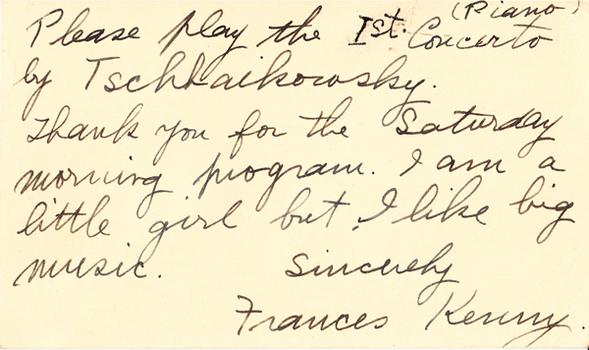 (Piano)
Please play the 1st. Concerto
by Tschkaikowsky.
Thank you for the Saturday
morning program. I am a
little girl but I like big
music. Sincerely
Frances Kenny.